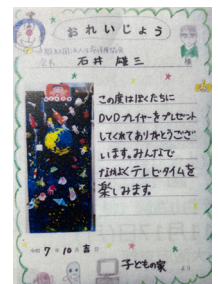 おれいじょう
石井 雄三 様
この度はぼくたちに
DVDプレイヤーをプレゼント
してくれてありがとうござ
います。みんなで
なかよくテレビタイムを
楽しみます。
令和 7年10月吉日
子どもの家 より